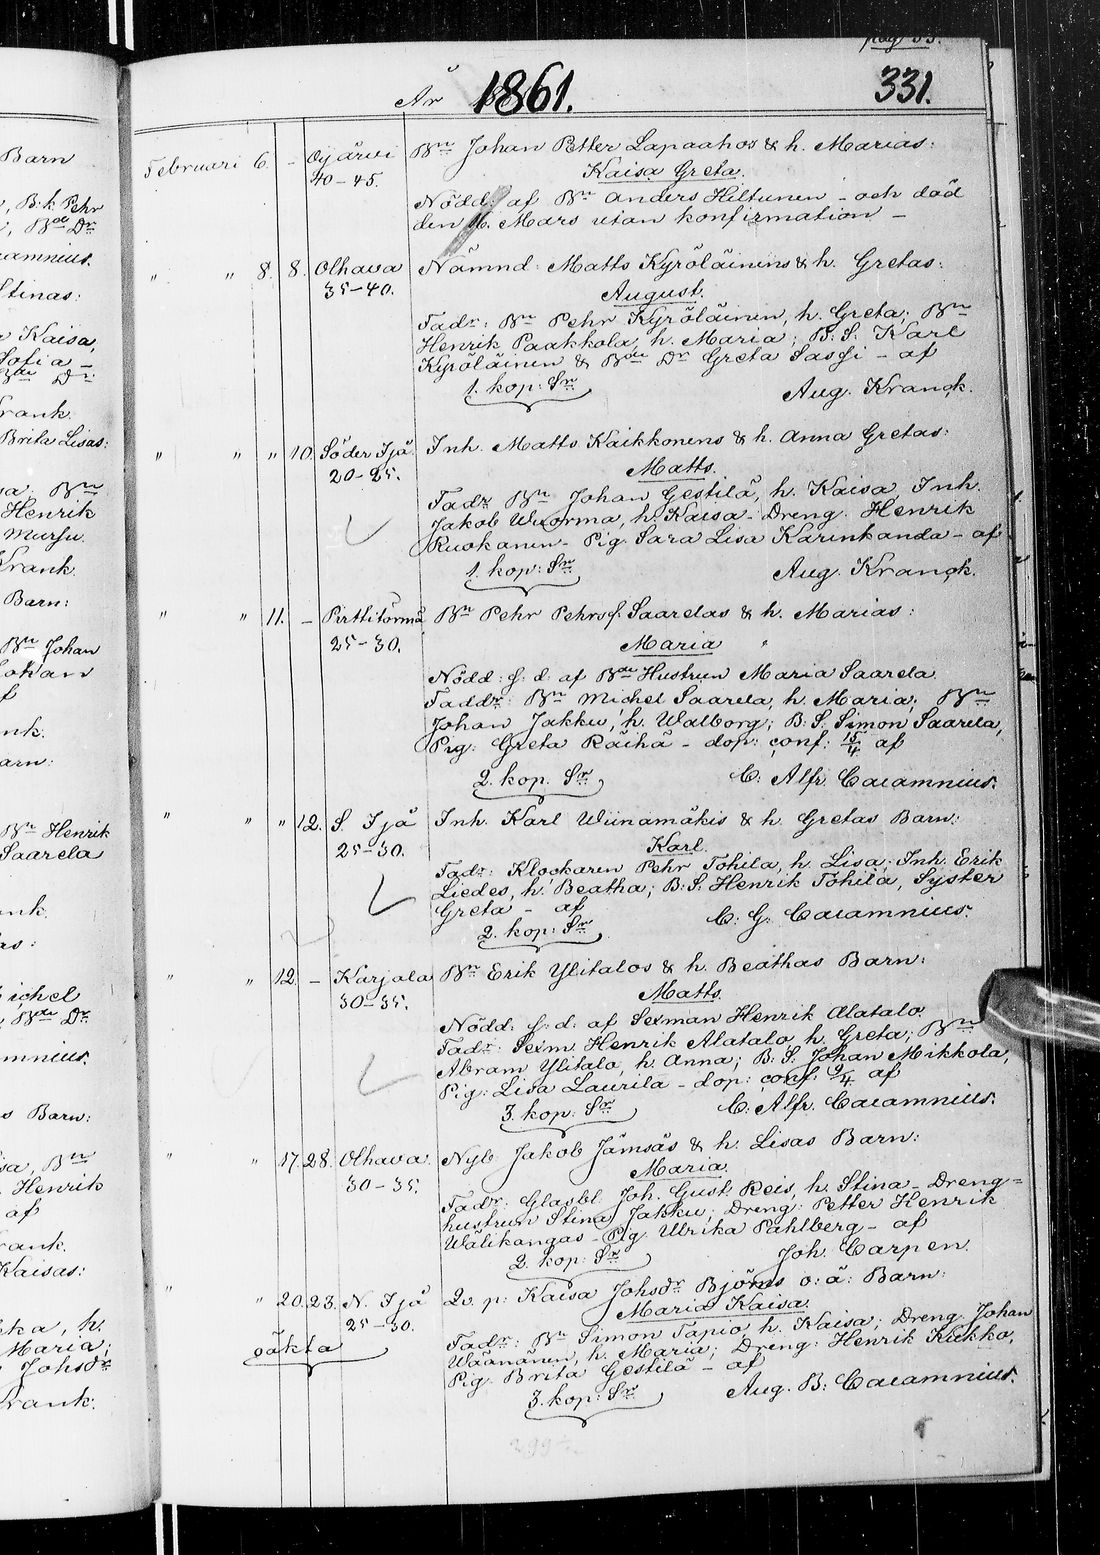 pag 33.
År 1861. 331.
Februari 6. – Oijärvi Bn Johan Petter Lapaahos & h. Marias:
40–45. Kaisa Greta.
Nödd: af Bn Anders Hiltunen – och död
den 16. Mars utan konfirmation –
" " 8. 8. Olhava Nämnd: Matts Kyröläinens & h. Gretas:
35–40. August.
Fadr: Bn Pehr Kyröläinen, h. Greta; Bn
Henrik Paakkola, h. Maria; B. S. Karl
Kyröläinen & Bde Dr Greta Sassi – af
1. kop: Sr Aug. Kranck.
" " " 10. Söder Ijå Inh. Matts Kaikkonens & h. Anna Gretas:
20–25. Matts.
Fadr Bn Johan Gestilä, h. Kaisa, Inh.
Jakob Wuorma, h. Kaisa – Dreng. Henrik
Ruokanen – Pig. Sara Lisa Karinkanda – af
1. kop: Sr Aug. Kranck.
" " 11. – Pirttitörmä Bn Pehr Pehrsf. Saarelas & h. Marias:
25–30. Maria
Nödd: s. d. af Bde Hustrun Maria Saarela.
Faddr: Bn Michel Saarela, h. Maria; Bn
Johan Jakku, h. Walborg; B. S. Simon Saarela,
Pig: Greta Räihä – dop: conf: 15/4 af
2. kop. Sr C. Alfr. Cajamnius.
" " " 12. S. Ijå Inh. Karl Wiinamäkis & h. Gretas Barn:
25–30. Karl.
Fadr: Klockaren Pehr Tohila, h. Lisa; Inh. Erik
Liedes, h. Beatha; B. S. Henrik Tohila, Syster
Greta – af C. G. Cajamnius.
2. kop: Sr
" " 12. – Karjala Bn Erik Ylitalos & h. Beathas Barn:
30–35. Matts.
Nödd: s. d. af Sexman Henrik Alatalo.
Fadr: Sexm Henrik Alatalo, h. Greta; Bn
Abram Ylitalo, h. Anna; B. S. Johan Mikkola,
Pig: Lisa Laurila – dop: conf: 9/4 af
3. kop: Sr C. Alfr. Cajamnius.
" " 17. 28. Olhava Nyb Jakob Jämsäs & h. Lisas Barn:
30–35. Maria.
Fadr: Glasbl Joh. Gust. Reis, h. Stina – Dreng=
hustrun Stina Jakku; Dreng: Petter Henrik
Wälikangas – Pig. Ulrika Pahlberg – af
2. kop: Sr Joh. Carpen.
" " 20. 23. N. Ijå Qv. p: Kaisa Johsdr Björns o: ä: Barn:
25–30. Maria Kaisa.
oäkta Fadr: Bn Simon Tapio, h. Kaisa; Dreng. Johan
Wäänänen, h. Maria; Dreng: Henrik Kukko,
Pig. Brita Gestilä – af
3. kop: Sr Aug. B: Cajamnius.